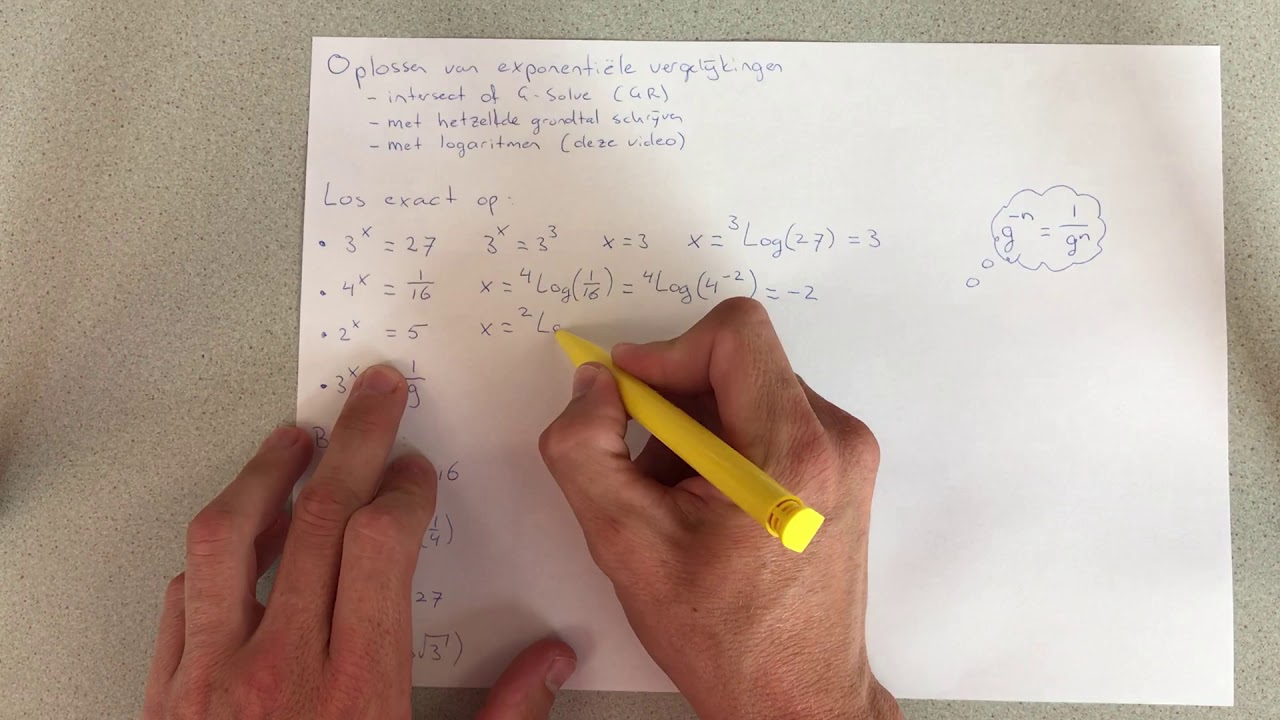 Oplossen van exponentiële vergelijkingen
- intersect of G-Solve (GR)
- met hetzelfde grondtal schrijven
- met logaritmen (deze video)
Los exact op:
• 3^x = 27 3^x = 3^3 x = 3 x = ³Log(27) = 3
• 4^x = 1/16 x = ⁴Log(1/16) = ⁴Log(4^-2) = -2
• 2^x = 5 x = ²Lo
• 3^x 1/9
B
16
1/4)
27
√3)
g^-n = 1/g^n